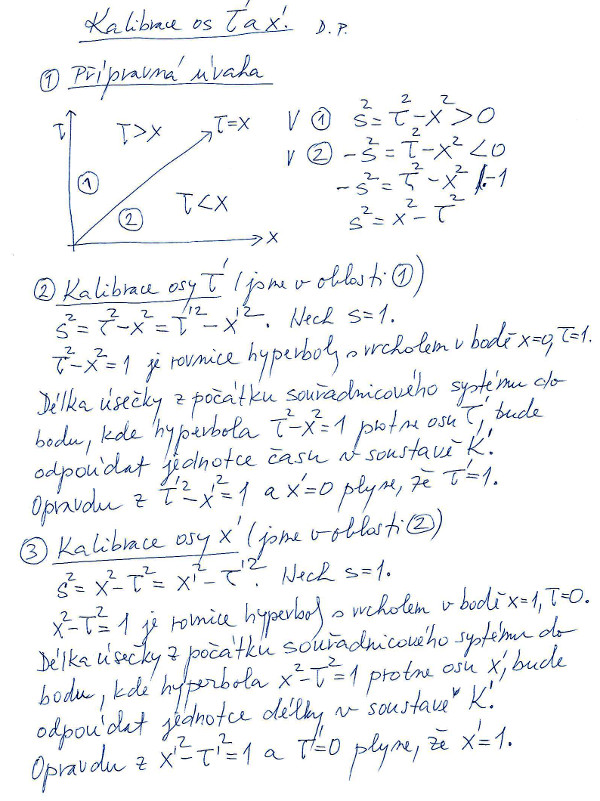 Kalibrace os τ' a x'. D.P.
① Přípravná úvaha
τ τ>x τ=x
① ② τ<x
x
V ① s²=τ²-x²>0
V ② -s²=τ²-x²<0
-s²=τ²-x² /·-1
s²=x²-τ²
② Kalibrace osy τ' (jsme v oblasti ①)
s²=τ²-x²=τ'²-x'². Nech s=1.
τ²-x²=1 je rovnice hyperboly s vrcholem v bodě x=0, τ=1.
Délka úsečky z počátku souřadnicového systému do
bodu, kde hyperbola τ²-x²=1 protne osu τ', bude
odpovídat jednotce času v soustavě K'.
Opravdu z τ'²-x'²=1 a x'=0 plyne, že τ'=1.
③ Kalibrace osy x' (jsme v oblasti ②)
s²=x²-τ²=x'²-τ'². Nech s=1.
x²-τ²=1 je rovnice hyperboly s vrcholem v bodě x=1, τ=0.
Délka úsečky z počátku souřadnicového systému do
bodu, kde hyperbola x²-τ²=1 protne osu x', bude
odpovídat jednotce délky v soustavě K'.
Opravdu z x'²-τ'²=1 a τ'=0 plyne, že x'=1.